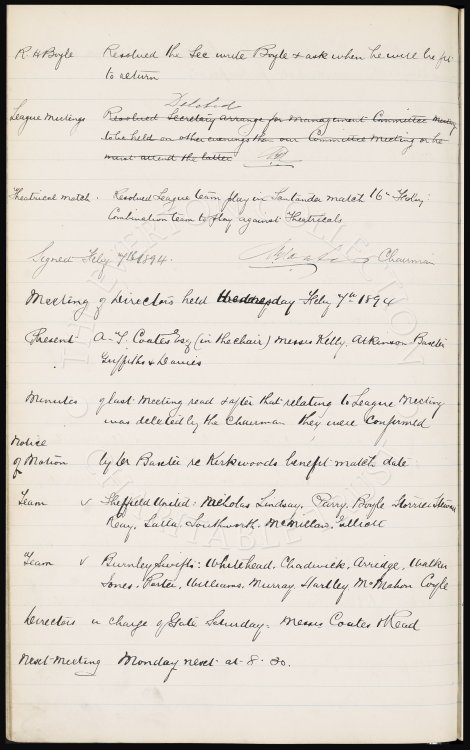 R. H Boyle Resolved the Sec write Boyle & ask when he will be fit
to return
Deleted
League Meetings Resolved Secretary arrange for Management Committee Meeting
to be held on other evenings than our Committee Meeting or he
must attend the latter
Theatrical match. Resolved League team play in Santander match 16th Feby
Combination team to play against Theatricals
Signed Feby 7th 1894. Chairman
Meeting of Directors held Wednesday Feby 7th 1894
Present A. T. Coates Esq (in the chair) Messrs Kelly, Atkinson Baxter
Griffiths & Davies
Minutes of last Meeting read & after that relating to League Meeting
was deleted by the Chairman they were confirmed
Notice
of Motion by Dr Baxter re Kirkwoods benefit match date
Team v Sheffield United: Nicholas Lindsay. Parry. Boyle Storrier Stewart
Reay, Latta, Southworth. McMillan, Elliott
Team v Burnley Swifts: Whitehead. Chadwick, Arridge, Walker
Jones. Porter, Williams. Murray Hartley McMahon Coyle
Directors in charge of Gate Saturday. Messrs Coates & Read
Next Meeting Monday next at 8.30.